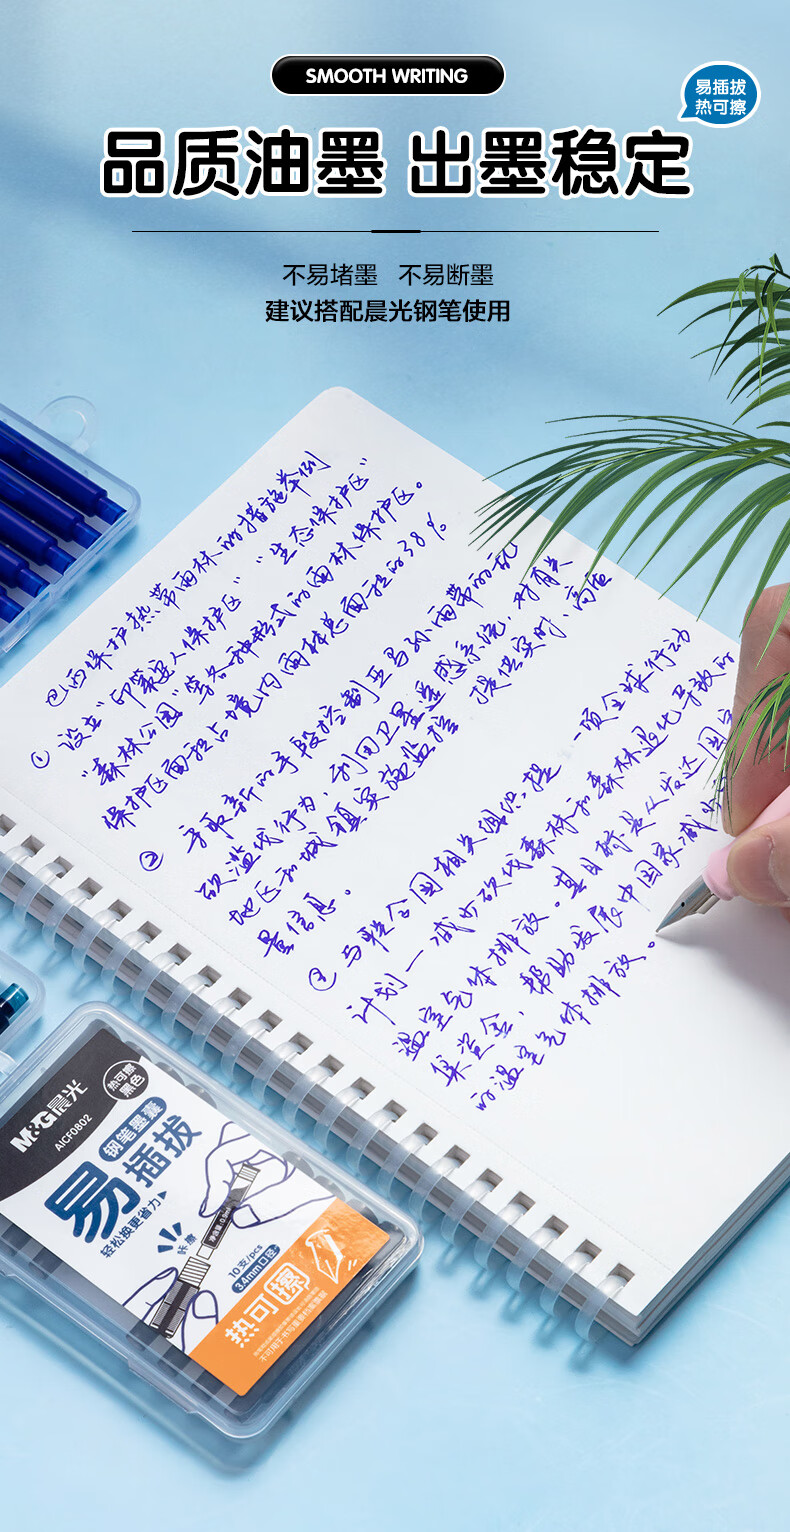 SMOOTH WRITING
易插拔
热可擦
品质油墨 出墨稳定
不易堵墨 不易断墨
建议搭配晨光钢笔使用
巴西保护热带雨林的措施举例
① 设立“印第安人保护区”“生态保护区”
“森林公园”等各种形式的雨林保护区。
保护区面积占境内雨林总面积的38%
② 采取新的手段控制亚马孙雨带的乱
砍滥伐行为，利用卫星遥感系统，对有关
地区和城镇实施监控 提供实时、高质
量信息。
③ 与联合国相关组织提 一项全球行动
计划一减少砍伐森林和森林退化导致的
温室气体排放。其目标是从发达国家
集资金，帮助发展中国家减少
的温室气体排放。
M&G晨光
AICF0802
热可擦
黑色
钢笔墨囊
易插拔
轻松换更省力
咔擦
净含量:0.9ml
10支/pcs
3.4mm口径
热可擦